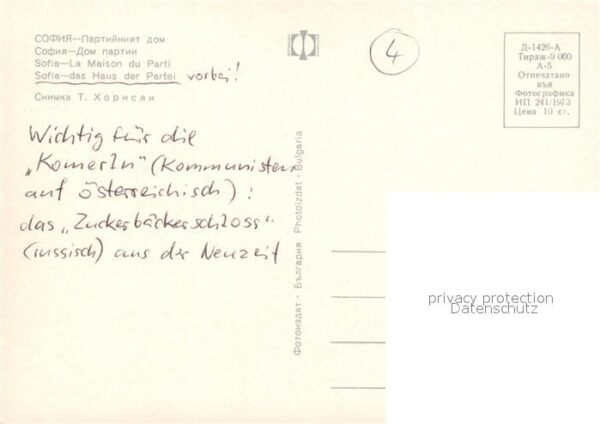 СОФИЯ—Партийният дом
София—Дом партии
Sofia—La Maison du Parti
Sofia—das Haus der Partei vorbei!
Снимка Т. Хорисян
4
Д-1426-А
Тираж-9 000
А-5
Отпечатано
във
Фотографика
ИП 241/1973
Цена 10 ст.
Wichtig für die
„Komerln" (Kommunisten
auf österreichisch):
das „Zuckerbäckerschloss"
(russisch) aus der Neuzeit
Фотоиздат - България Photoizdat - Bulgaria
privacy protection
Datenschutz